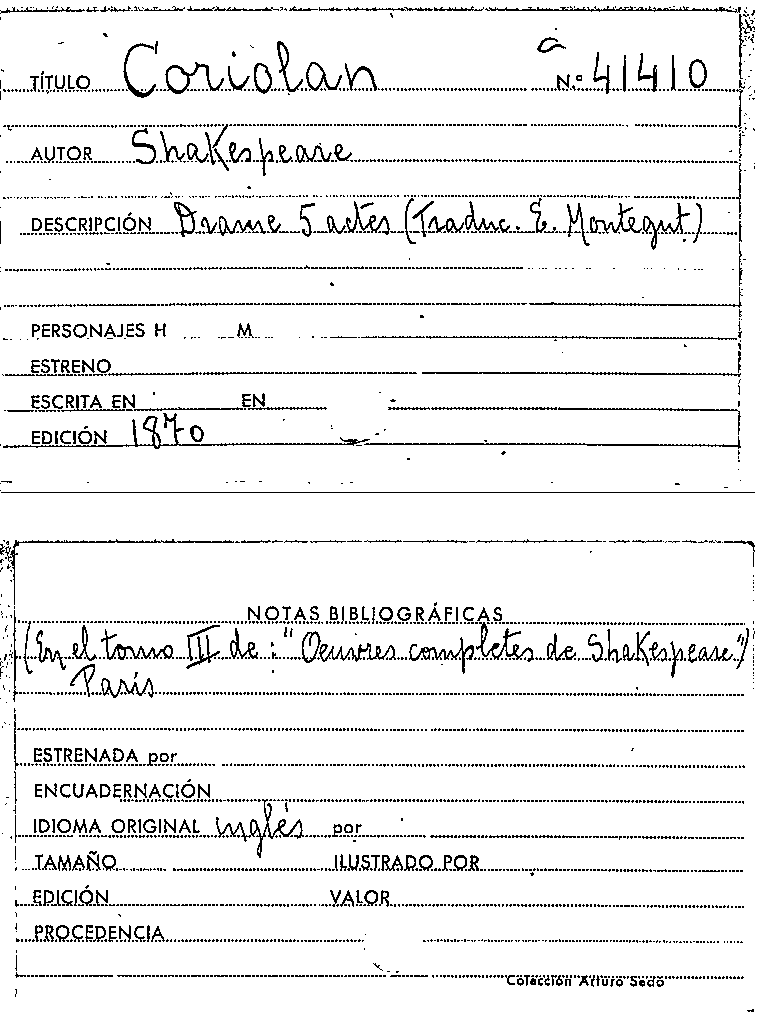 TÍTULO Coriolan N.º 41410
AUTOR Shakespeare
DESCRIPCIÓN Drame 5 actes (Traduc. E. Montegut)
PERSONAJES H M
ESTRENO
ESCRITA EN EN
EDICIÓN 1870
NOTAS BIBLIOGRÁFICAS
(En el tomo III de: "Oeuvres completes de Shakespeare")
París
ESTRENADA por
ENCUADERNACIÓN
IDIOMA ORIGINAL inglés por
TAMAÑO ILUSTRADO POR
EDICIÓN VALOR
PROCEDENCIA
Colección Arturo Sedó